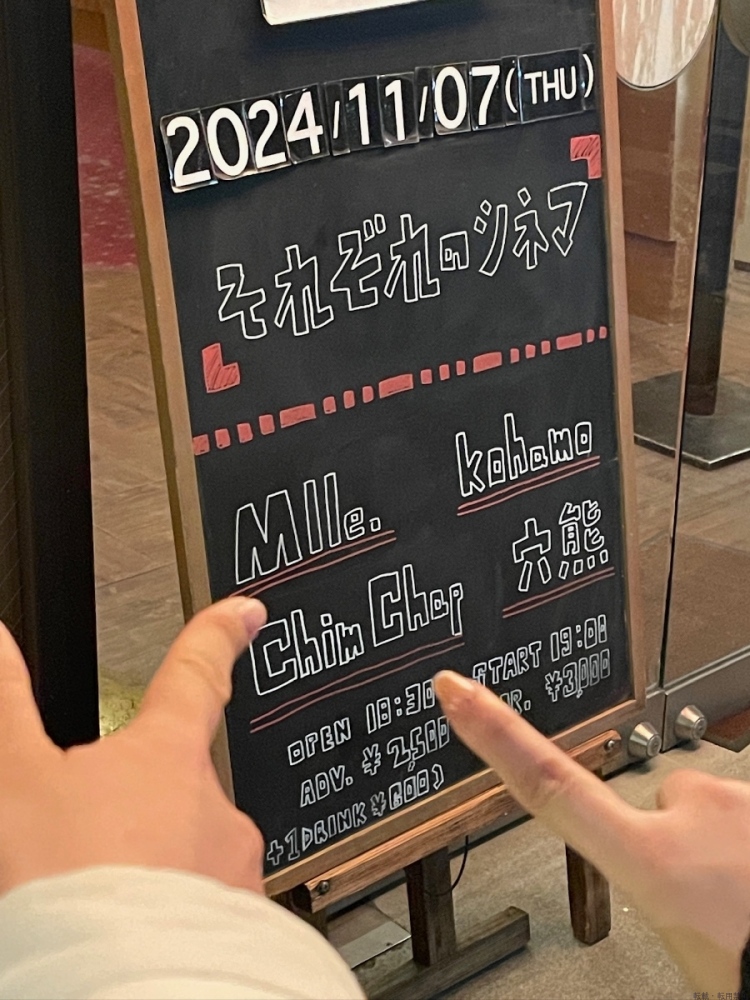 2024/11/07(THU)
それぞれのシネマ
Mlle. kohamo
Chim Chap 穴熊
OPEN 18:30 START 19:00
ADV. ¥2,500 ¥3,000
+1DRINK ¥600)